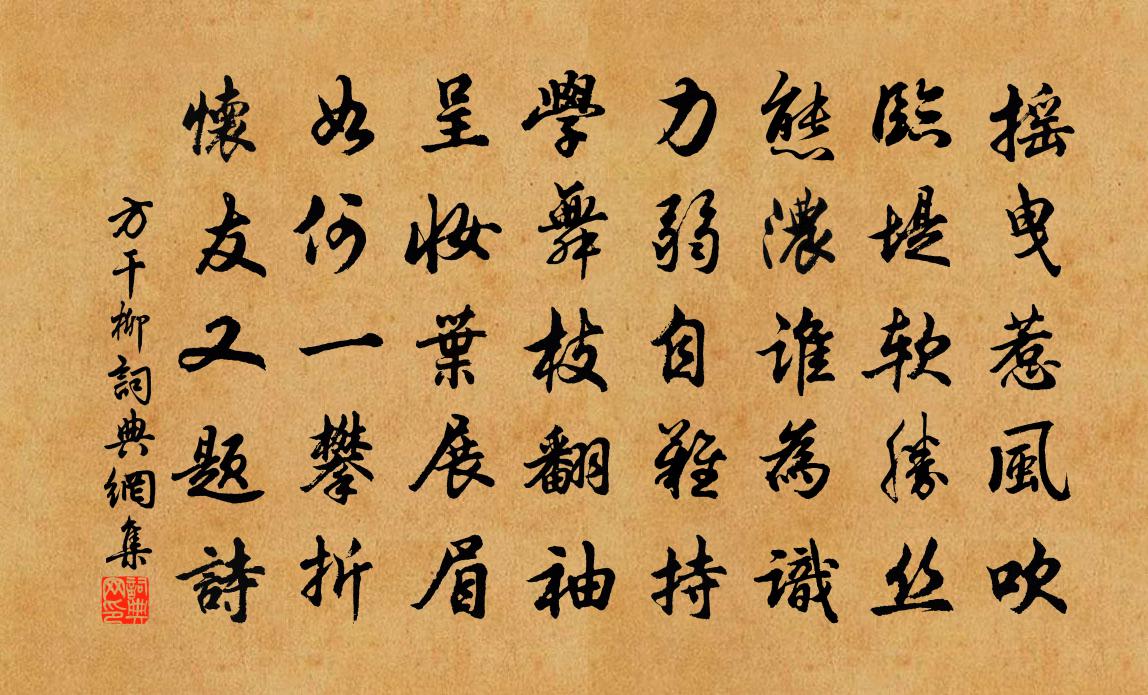 搖曳惹風吹
臨堤軟勝丝
態濃誰為識
力弱自難持
學舞枝翻袖
呈妝葉展眉
如何一攀折
懷友又題詩
方干柳詞典網集
詞典网印